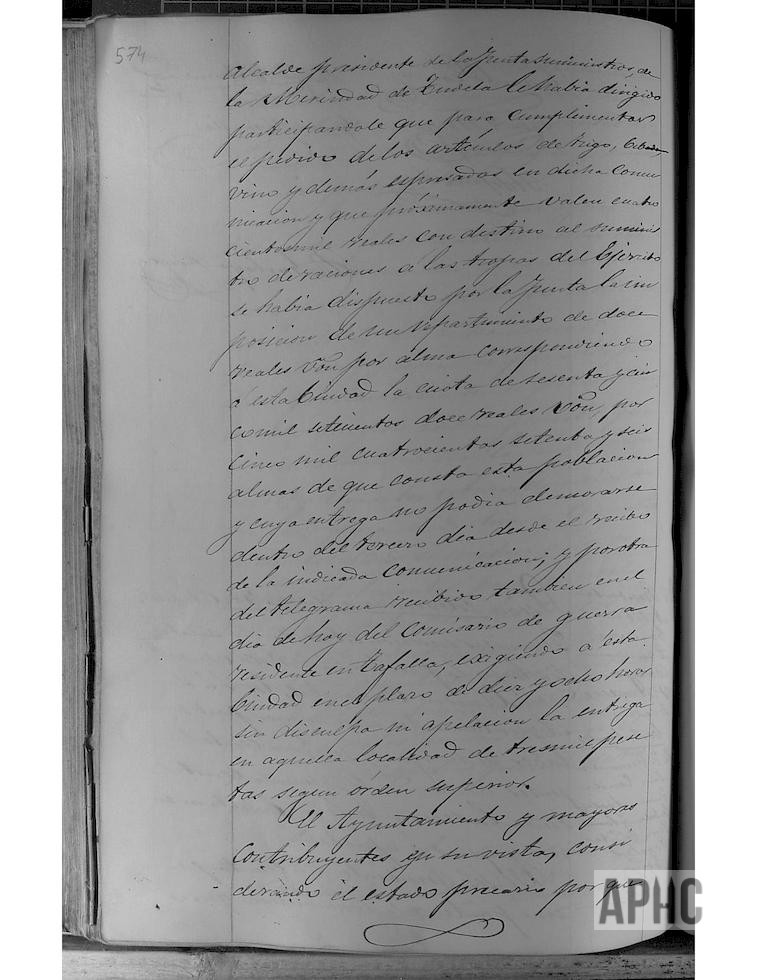 574
Alcalde presidente de la Junta suministros, de
la Merindad de Tudela le habia dirigido
participandole que para cumplimentar
el pedido de los artículos de trigo, Cebada,
vino y demás espresados en dicha Comu
nicacion y que próximamente valen cuatro
cientos mil reales con destino al suminis
tro de raciones á las tropas del Ejercito
se habia dispuesto por la Junta la im
posicion de un repartimiento de doce
reales Von por alma correspondiendo
á esta Ciudad la cuota de sesenta y cin
co mil setecientos doce reales Von, por
cinco mil cuatrocientas setenta y seis
almas de que consta esta poblacion
y cuya entrega no podia demorarse
dentro del tercero dia desde el recibo
de la indicada comunicacion; y por otra
del telegrama recibido tambien en el
dia de hoy del Comisario de guerra
residente en Tafalla, exigiendo á esta
Ciudad en el plazo de diez y ocho horas
sin disculpa ni apelacion la entrega
en aquella localidad de tres mil pese
tas segun órden superior.
El Ayuntamiento y mayores
Contribuyentes en su vista, consi
derando el estado precario por que
APHC